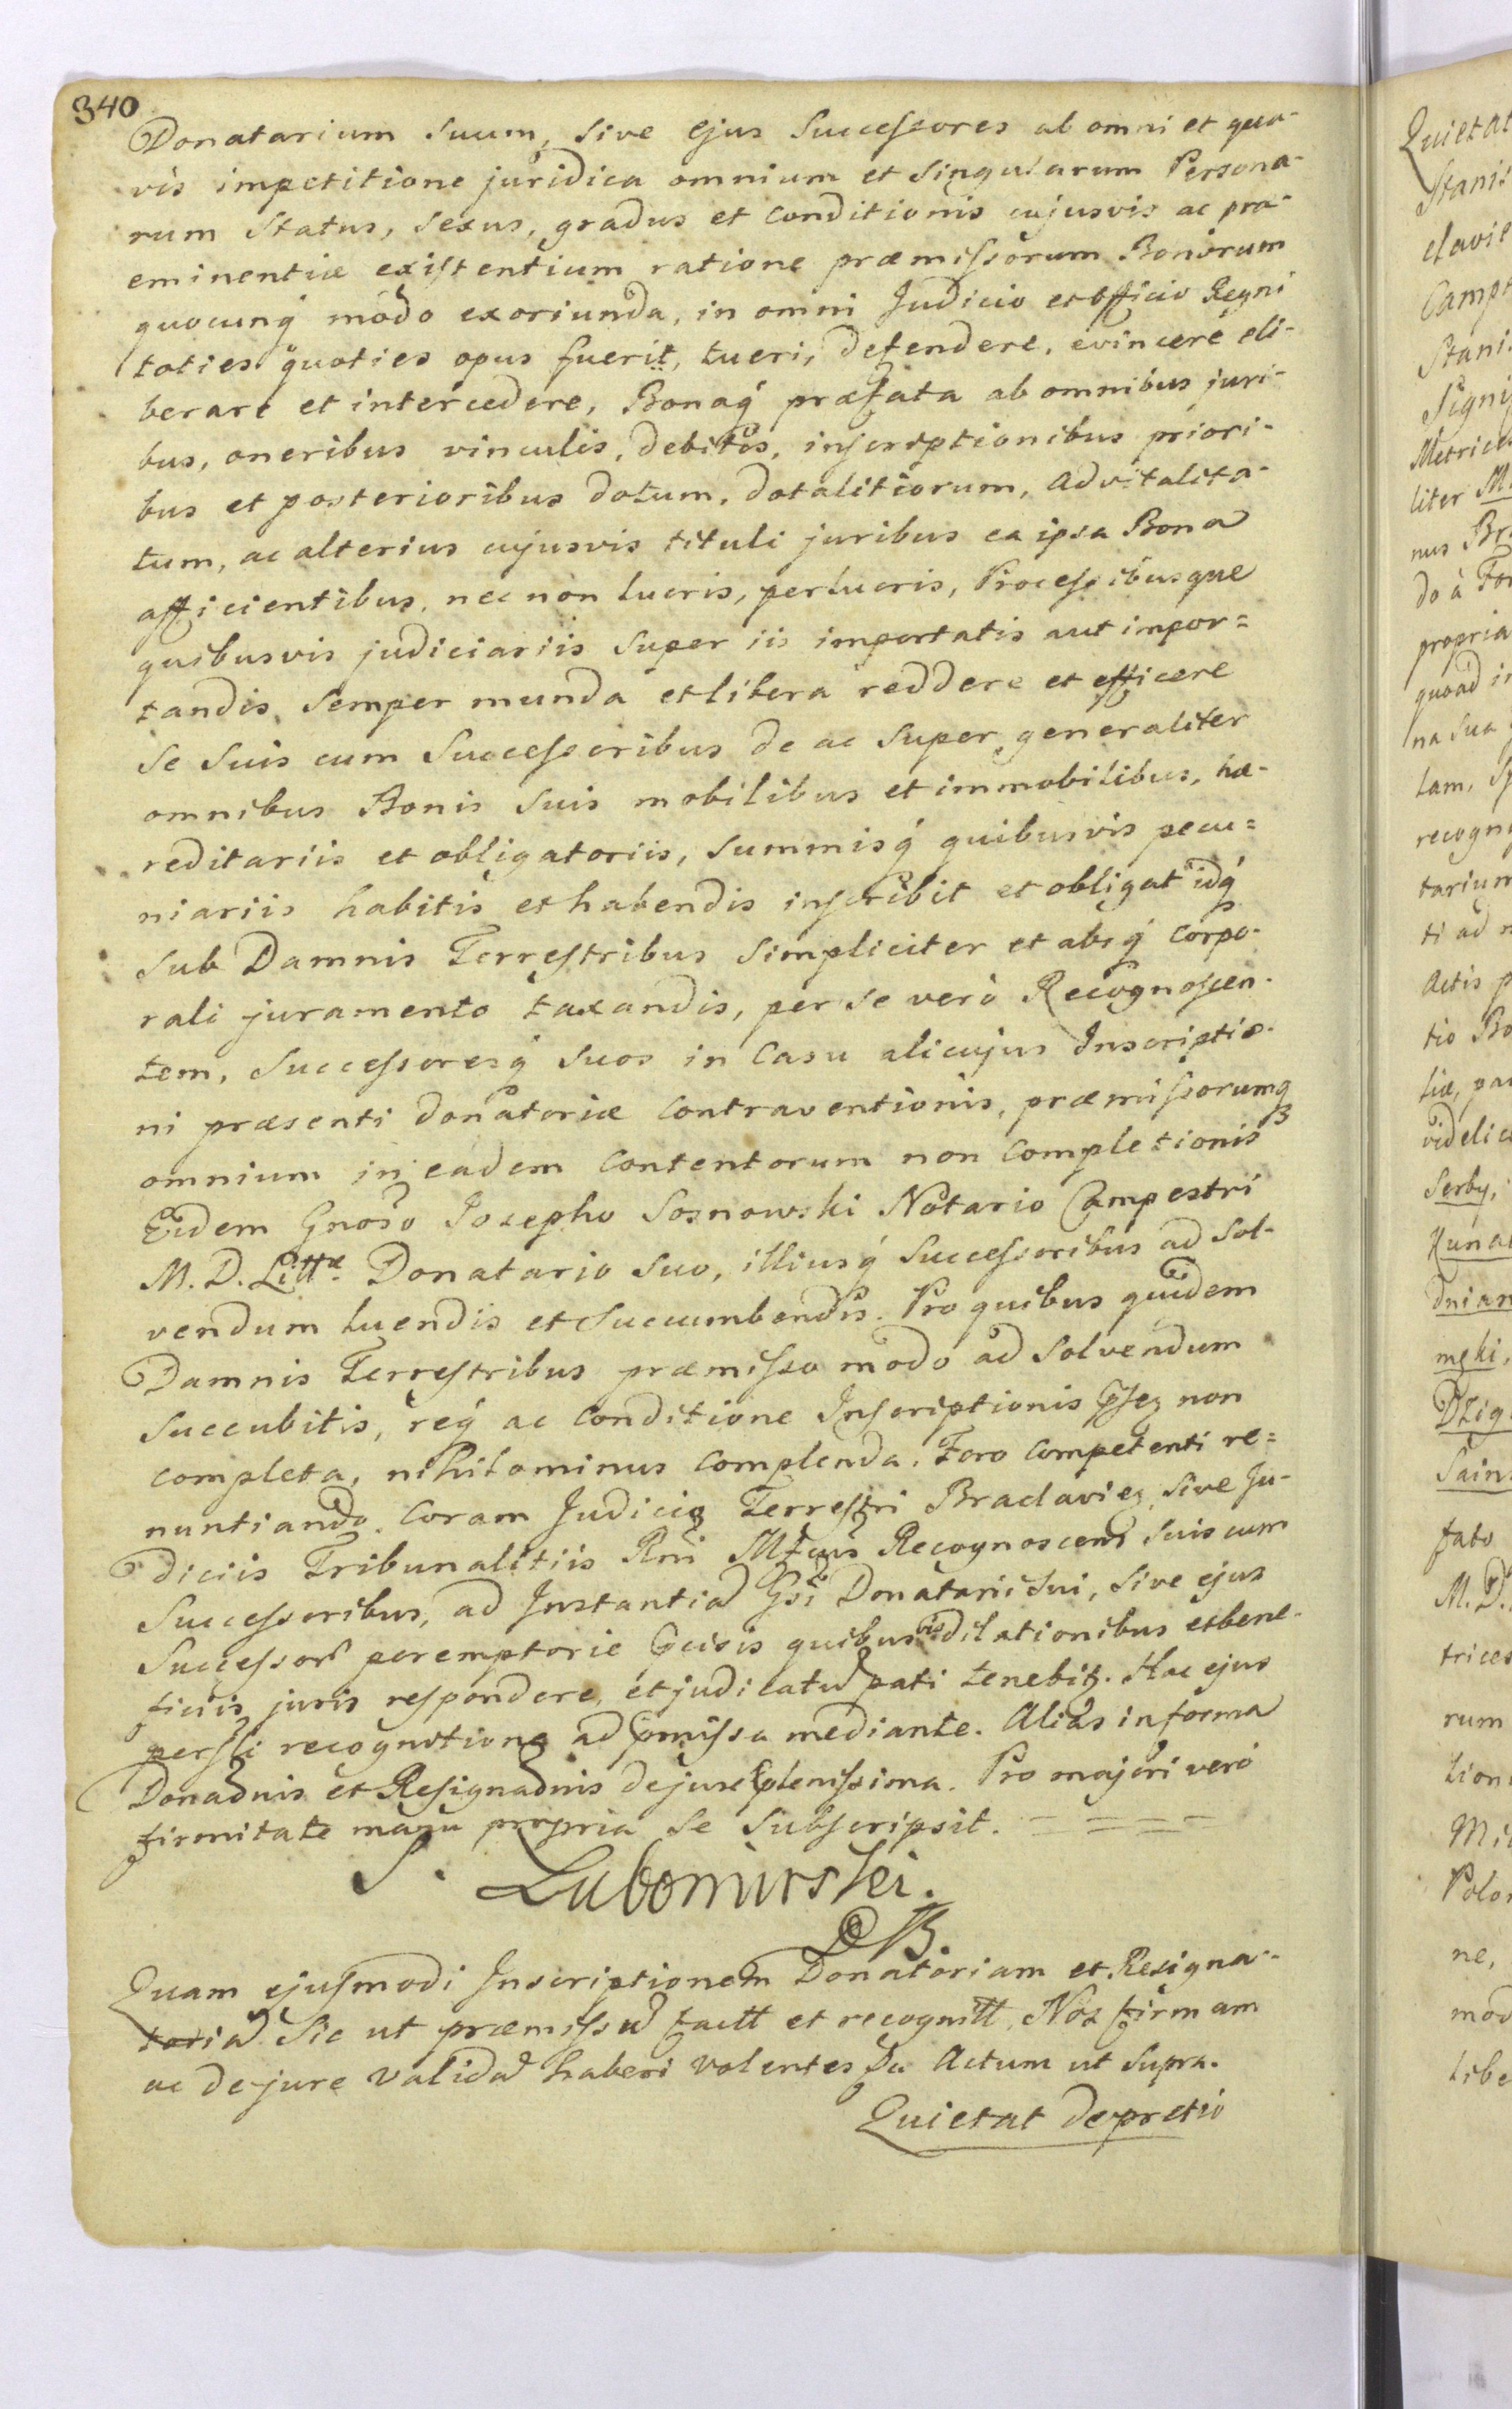 340
Donatarium suum, sive ejus Successores ab omni et qua-
vis impetitione juridica omnium et singularum Persona-
rum status, sexus, gradus et conditionis cujusvis ac præ-
eminentiæ existentium ratione præmissorum Bonorum
quocunq́ modo exoriunda, in omni Judicio et Officio Regni
toties quoties opus fuerit, tueri, defendere, evincere eli-
berare et intercedere, Bonaq́ præfata ab omnibus juri-
bus, oneribus vinculis, debitis, inscriptionibus priori-
bus et posterioribus dotum, dotalitiorum, advitalita-
tum, ac alterius cujusvis tituli juribus ea ipsa Bona
afficientibus, nec non lucris, perlucris, Processibusque
quibusvis judiciariis super iis importatis aut impor=
tandis, semper munda et libera reddere et efficere
se suis cum Successoribus de ac super generaliter
omnibus Bonis suis mobilibus et immobilibus, hæ-
reditariis et obligatoriis, summisq́ quibusvis pecu=
niariis habitis et habendis inscribit et obligat idq́
sub Damnis Terrestribus simpliciter et absq́ corpo-
rali juramento taxandis, per se verò Recognoscen-
tem, Successoresq́ suos in casu alicujus Inscriptio-
ni præsenti donatoriæ contraventionis, præmissorumq
omnium in eadem contentorum non completionis
Eidem Gnoso Josepho Sosnowski Notario Campestri
M. D. Littæ Donatario suo, illiusq́ Successoribus ad sol-
vendum luendis et succumbendis. Pro quibus quidem
Damnis Terrestribus præmisso modo ad solvendum
succubitis, req́ ac conditione Inscriptionis non
completa, nihilominus complenda. Foro competenti re=
nuntiando. Coram Judicio Terrestri Braclavieñ sive Ju-
diciis Tribunalitiis Rñi Recognoscens suis cum
Successoribus, ad Instantia Gsi Donatarii sui, sive ejus
Successor peremptorie quibusvis dilationibus et bene-
ficiis juris respondere, et judicatu pati tenebit. Hac ejus
persli recognitione ad pmissa mediante. Alias in forma
Donadnis et Resignadnis de jure plenissima. Pro majori verò
firmitate manu propria se subscripsit. = = = =
S. Lubomirski.
Quam ejusmodi Inscriptionem Donatoriam et Resigna-
toria sic ut præmissu factt et recognitt Nos firmam
ac de jure valida haberi volentes Du Actum ut supra.
Quietat de pretio